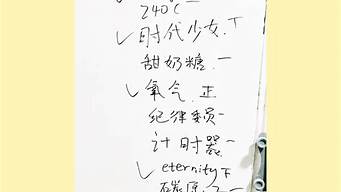 240℃一
✓时代少女.丅
甜奶糖.一
✓氧气.正
纪律委员一
计时器一
✓eternity下